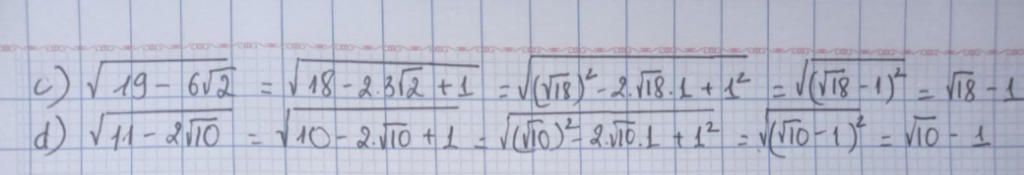 c) √(19 - 6√2) = √(18 - 2.3√2 + 1) = √((√18)² - 2.√18.1 + 1²) = √((√18 - 1)²) = √18 - 1
d) √(11 - 2√10) = √(10 - 2.√10 + 1) = √((√10)² - 2.√10.1 + 1²) = √((√10 - 1)²) = √10 - 1